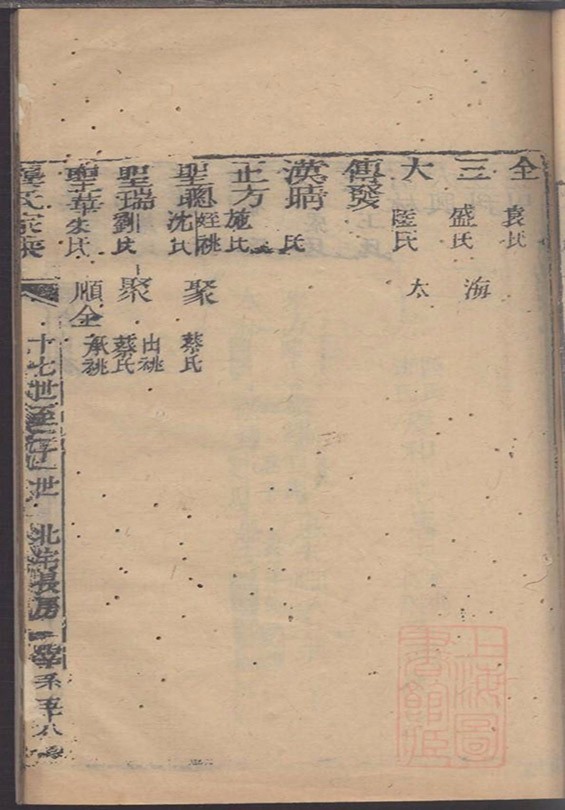 全 袁氏
三 盛氏 海
大 陸氏 太
傳發
漢晴 氏
正方 施氏
聖聰 姪祧 沈氏 聚 蔡氏
聖瑞 劉氏 聚 出祧 蔡氏
聖華 朱氏 順全 承祧
氏家乘
十七世至二十一世 北宅長房 世系 五十八
上海圖書館藏